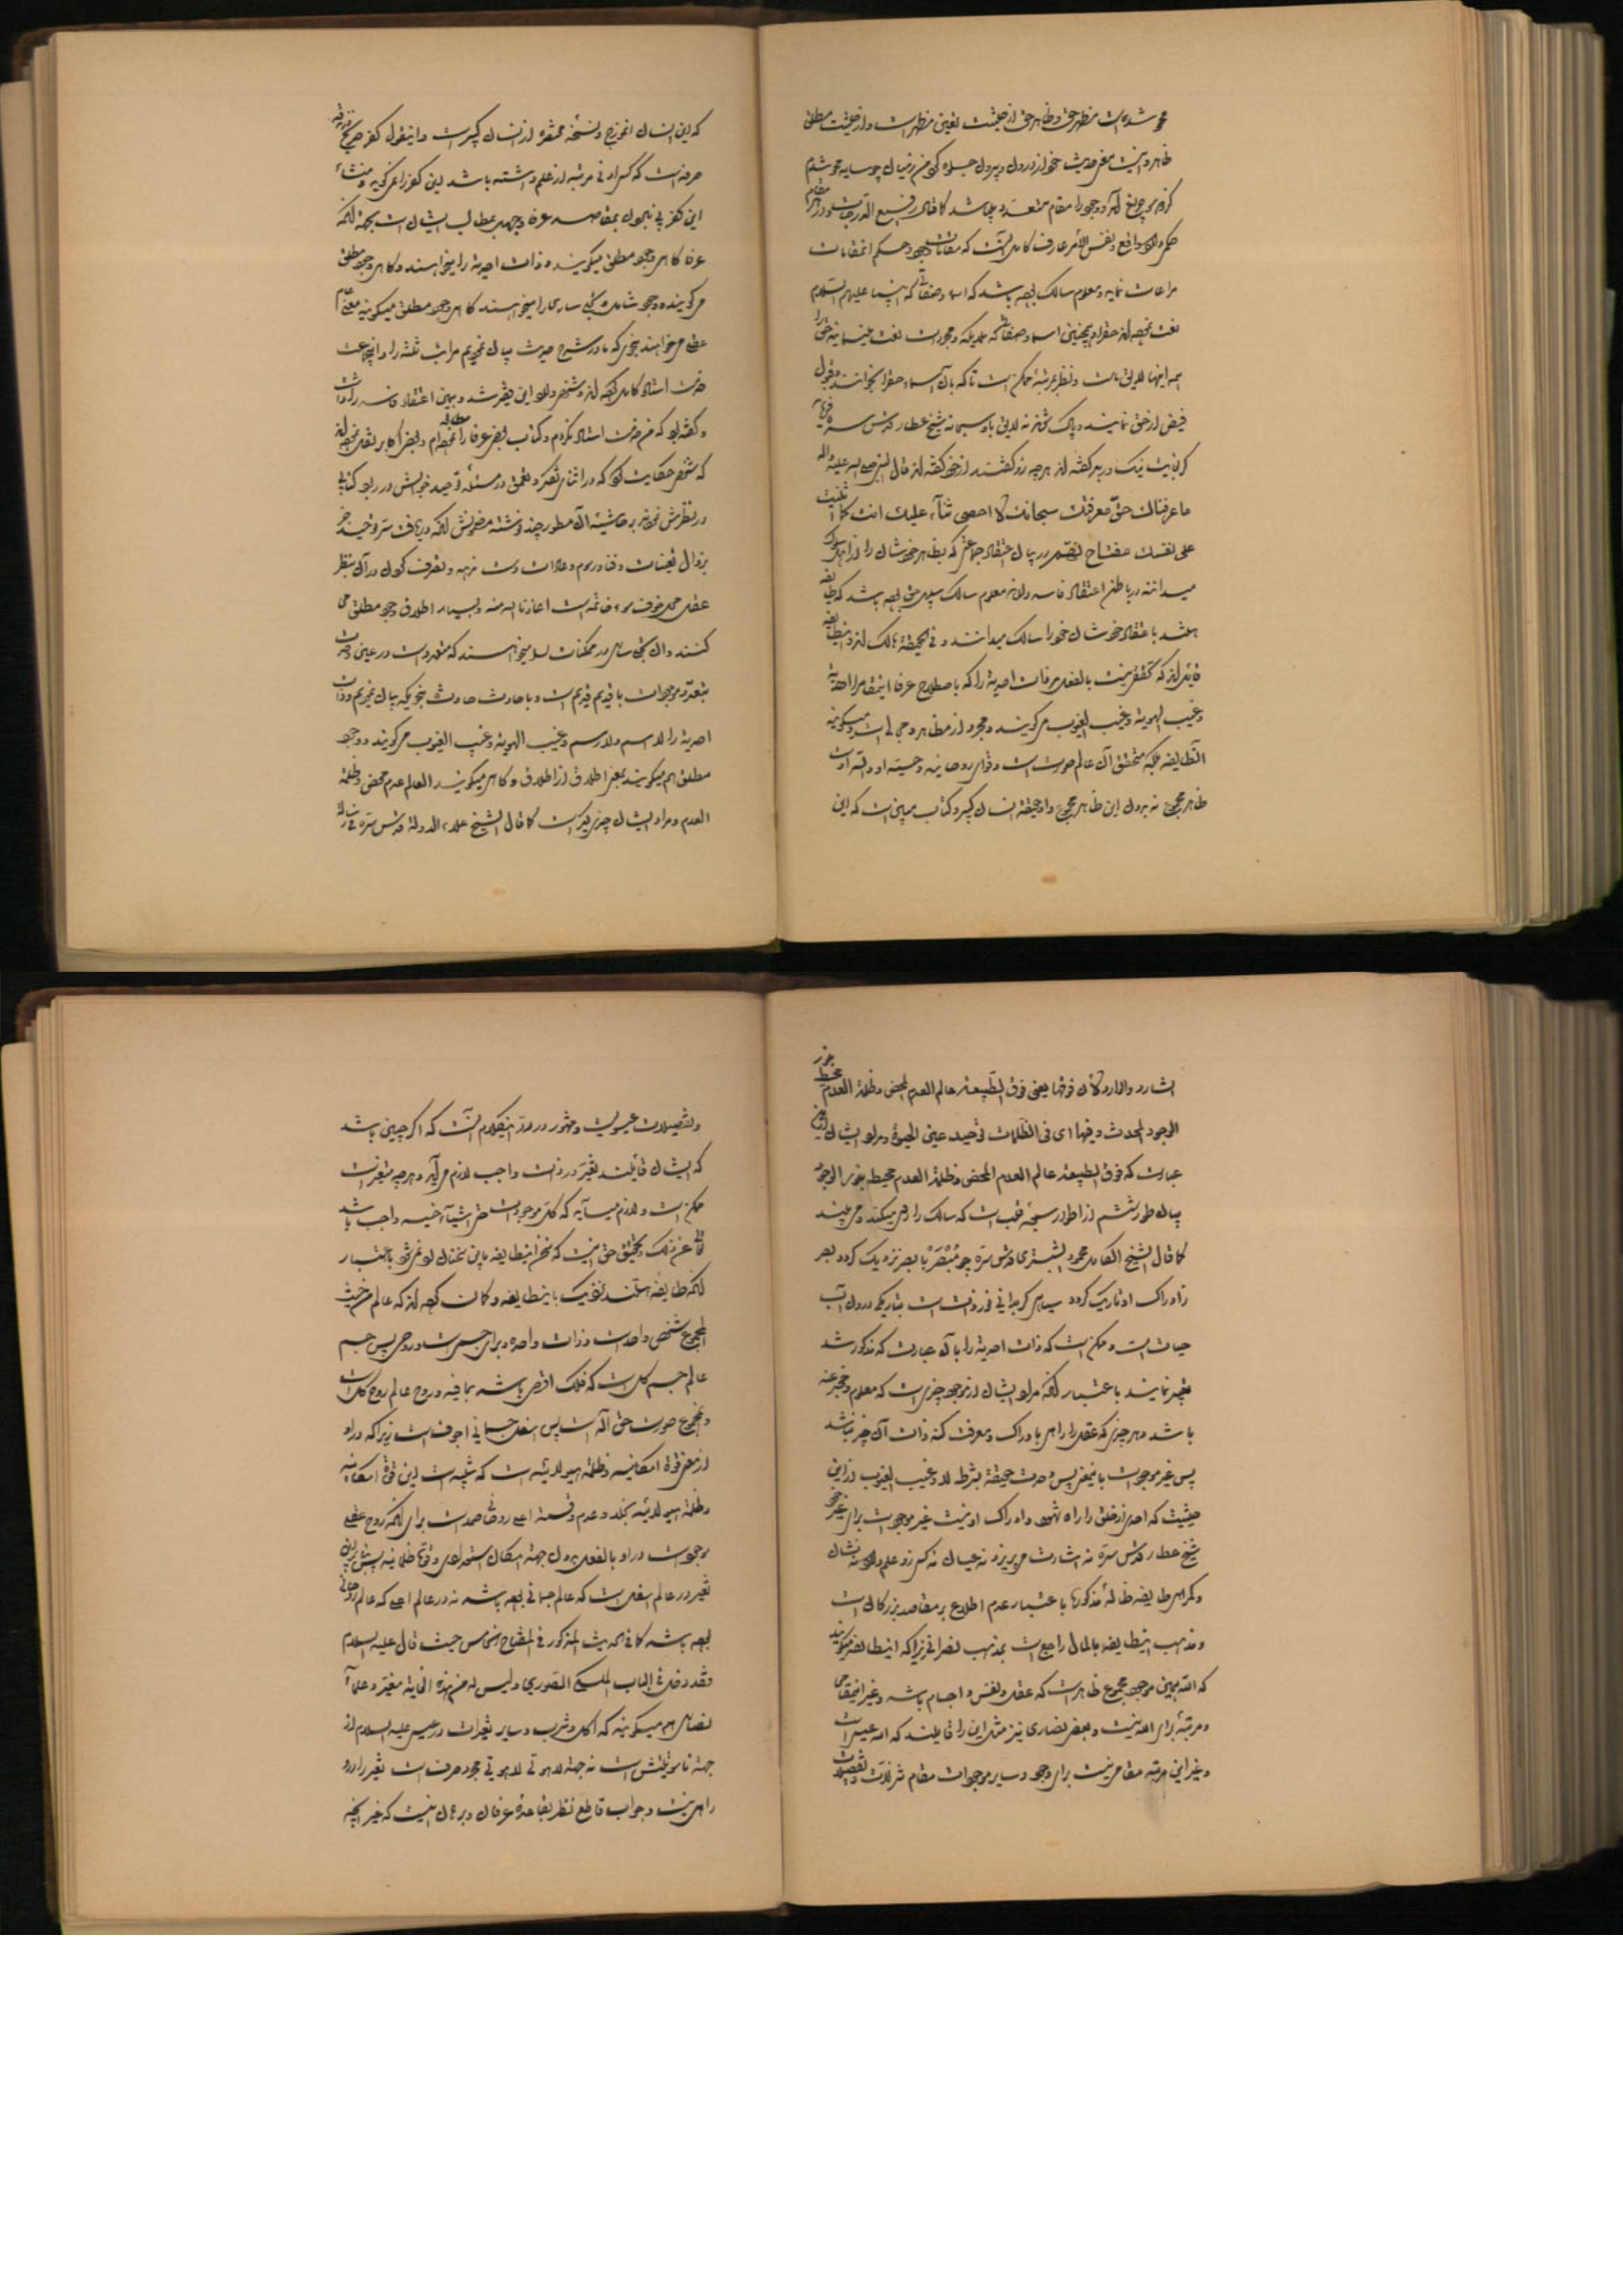 محو شده است مظهر حق و ظاهر حق از حیثیت تعین مظهر است و از حیثیت مطلق
ظاهر و اینست معنی حدیث خود از درون و برون جلوه کنی من ز میان چو سایه محو شدم
وجود را مقام متعدد میباشد کما قال رفیع الدرجات و در هر مقام
حکم واقع و نفس الامر عارف کامل آنست که مقامات وجود و حکم آنمقامات
مراعات نماید و معلوم سالک بوده باشد که اسما و صفات که انبیا علیهم السلام
همه اینها لایق ماست و نظر بمرتبه ممکن است تا که بآن اسماء حق را بخوانند و قبول
فیض از حق نمایند و پاک و منزه لایق باو سبحانه شیخ عطار قدس سره فرماید
گر بغایت نیک و بد گفته‌اند هر چه زو گفتند از خود گفته‌اند قال النبی صلی الله علیه و اله
ما عرفناک حق معرفتک سبحانک لا احصی ثناء علیک انت کما اثنیت
علی نفسک مفتاح نهم در بیان اعتقاد جماعتی که بظاهر خودشان را از اهل سلوک
میدانند و در باطن اعتقاد فاسد دارند معلوم سالک سبیل حق بوده باشد که طایفه
هستند باعتقاد خودشان خود را سالک میدانند و فی الحقیقة هالک‌اند و اینطایفه
قایل‌اند که تحقق نیست بالفعل مر ذات احدیة را که باصطلاح عرفا اینمقام را احدیة
و غیب الهویة و غیب الغیوب میگویند و مجرد از مظاهر و مجالی است و میگویند
آنطایفه بلکه متحقق آن عالم صورت است و قوای روحانیه و حسیه او و الله اوست
ظاهر مجموع نه بدون این ظاهر مجموع و او حقیقة انسان کبیر و کتاب مبین است که این
که این انسان انموزج و نسخه محقره از انسان کبیر است و اینقول کفر صریح و زندقه
صرفه است که کسی را ادنی مرتبه از علم داشته باشد این کفر را نمیگوید و منشاء
این کفر پی نبردن بمقاصد عرفا و جهل بمطالب ایشان است بجهة آنکه
عرفا گاهی وجود مطلق میگویند و ذات احدیة را میخواهند و گاهی وجود مطلق
میگویند و وجود شامل و تجلی ساری را میخواهند گاهی وجود مطلق میگویند معنی عام
عقلی میخواهند بنحوی که ما در شرح حدیث بیان نمودیم مراتب ثلثه را و اینجماعت
خدمت استاد کامل
و گفته بود که من خدمت استاد نکردم و کتاب بعض عرفا را مطالعه نموده‌ام و بعض اکابر
که شخصی حکایت کرد که در اثنای تفکر و تعمق در مسئله توحید خوابش در ربود کتابی
در نظرش نمودند بر حاشیه آن سطور چند نوشته مضمونش آنکه دریافت سر توحید جز
بزوال تعینات و فنا و رسوم و علامات دست ندهد و تصرف کردن در آن بنظر
عقل محل خوف سوء خاتمه است اعاذنا الله منه و بسیار اطلاق وجود مطلق می
کنند و از آن تجلی ساری در ممکنات را میخواهند که متعدد است در عین وحدت
بتعدد موجودات با قدیم قدیم است و با حادث حادث بنحویکه بیان نمودیم و ذات
احدیة را لا اسم و لا رسم و غیب الهویة و غیب الغیوب میگویند و وجود
مطلق هم میگویند بمعنی اطلاق از اطلاق و گاهی میگویند العالم عدم محض و ظلمة
العدم و مراد ایشان چیز دیگر است کما قال الشیخ علاء الدولة قدس سره فی رسالة
الشارد و الوارد لان فوقها یعنی فوق الطبیعة عالم العدم المحض و ظلمة العدم محیط بنور
الوجود المحدث و فیها ای فی الظلمات توجد عین الحیوة و مراد ایشان از این
عبارت که فوق الطبیعة عالم العدم المحض و ظلمة العدم محیط بنور الوجود
بیان طور ششم از اطوار سبعه قلب است که سالک را رخ میکند و می‌بیند
کما قال الشیخ الکامل محمود الشبستری قدس سره چو مُبْصَر با بصر نزدیک گردد بصر
ز ادراک او تاریک گردد سیاهی گر بدانی نور ذات است بتاریکی درون آب
حیات است و ممکن است که ذات احدیة را بآن عبارت که مذکور شد
تعبیر نمایند باعتبار آنکه مراد ایشان از موجود چیزی است که معلوم و مخبر عنه
باشد و هر چیزی که عقل را راهی بادراک و معرفت کنه ذات آن چیز نباشد
پس غیر موجود است باینمعنی پس وحدت حقیقة بشرط لا و غیب الغیوب از این
حیثیت که احدی از خلق را راه شهود و ادراک او نیست غیر موجود است برای غیر خود
شیخ عطار قدس سره نه اشارت می‌پذیرد نه عیان نه کسی زو علم دارد نه نشان
و گمراهی طایفه ضاله مذکورها باعتبار عدم اطلاع بر مقاصد بزرگان است
و مذهب اینطایفه بالمال راجع است بمذهب نصرانی زیرا که اینطایفه میگویند
که الله همین موجود مجموع ظاهر است که عقل و نفس و اجسام باشد و غیر اینمقام
و مرتبه برای الله نیست و بعض نصاری نیز مثل این را قایلند که الله عیسی است
و غیر این مرتبه مقامی نیست برای وجود و سایر موجودات مقام تنزلات و تفصیلات
و تفصیلات عیسویست و مشهور در رد اینکلام آنست که اگر چنین باشد
که ایشان قایلند تغیر در ذات واجب لازم می‌آید و هر چه متغیر است
ممکن است و لازم میآید که کل موجود است حتی اشیاء خسیسه واجب باشد
تعالی عن ذلک و تحقیق حق اینست که سخن اینطایفه باین سخنان رد نمیشود باعتبار
آنکه طایفه هستند نزدیک باینطایفه و گمان کرده‌اند که عالم من حیث
المجموع شخص واحد است و ذات واحده و برای جسم است و روحی پس جسم
عالم جسم کل است که فلک اقصی باشد بما فیه و روح عالم روح کل است
و مجموع صورت حق آله است پس اسفل جسمانی اجوف است زیرا که در او
از معنی قوة امکانیه و ظلمة هیولانیه است که شبیه است این قوة امکانیه
و ظلمة هیولانیه بخلا و عدم و قسمة اعلی روحانی صمد است برای آنکه روح عقلی
موجود است در او بالفعل بدون جهة امکان استعدادی و قوة ظلمانیه پس بنابراین
تغیر در عالم اسفل است که عالم جسمانی بوده باشد نه در عالم اعلی که عالم روحانی
بوده باشد کما فی الحدیث المذکور فی المفتاح الخامس حیث قال علیه السلام
فقد دخل فی الباب الملکی الصوری و لیس له من هذه الغایة مغیر و علماء
نصاری هم میگویند که اکل و شرب و سایر تغیرات در عیسی علیه السلام از
جهة ناسوتیتش است نه جهة لاهوتی لاهوتی مجرد صرف است تغیر را در او
راهی نیست و جواب قاطع نظر بقاعده عرفان و برهان اینست که